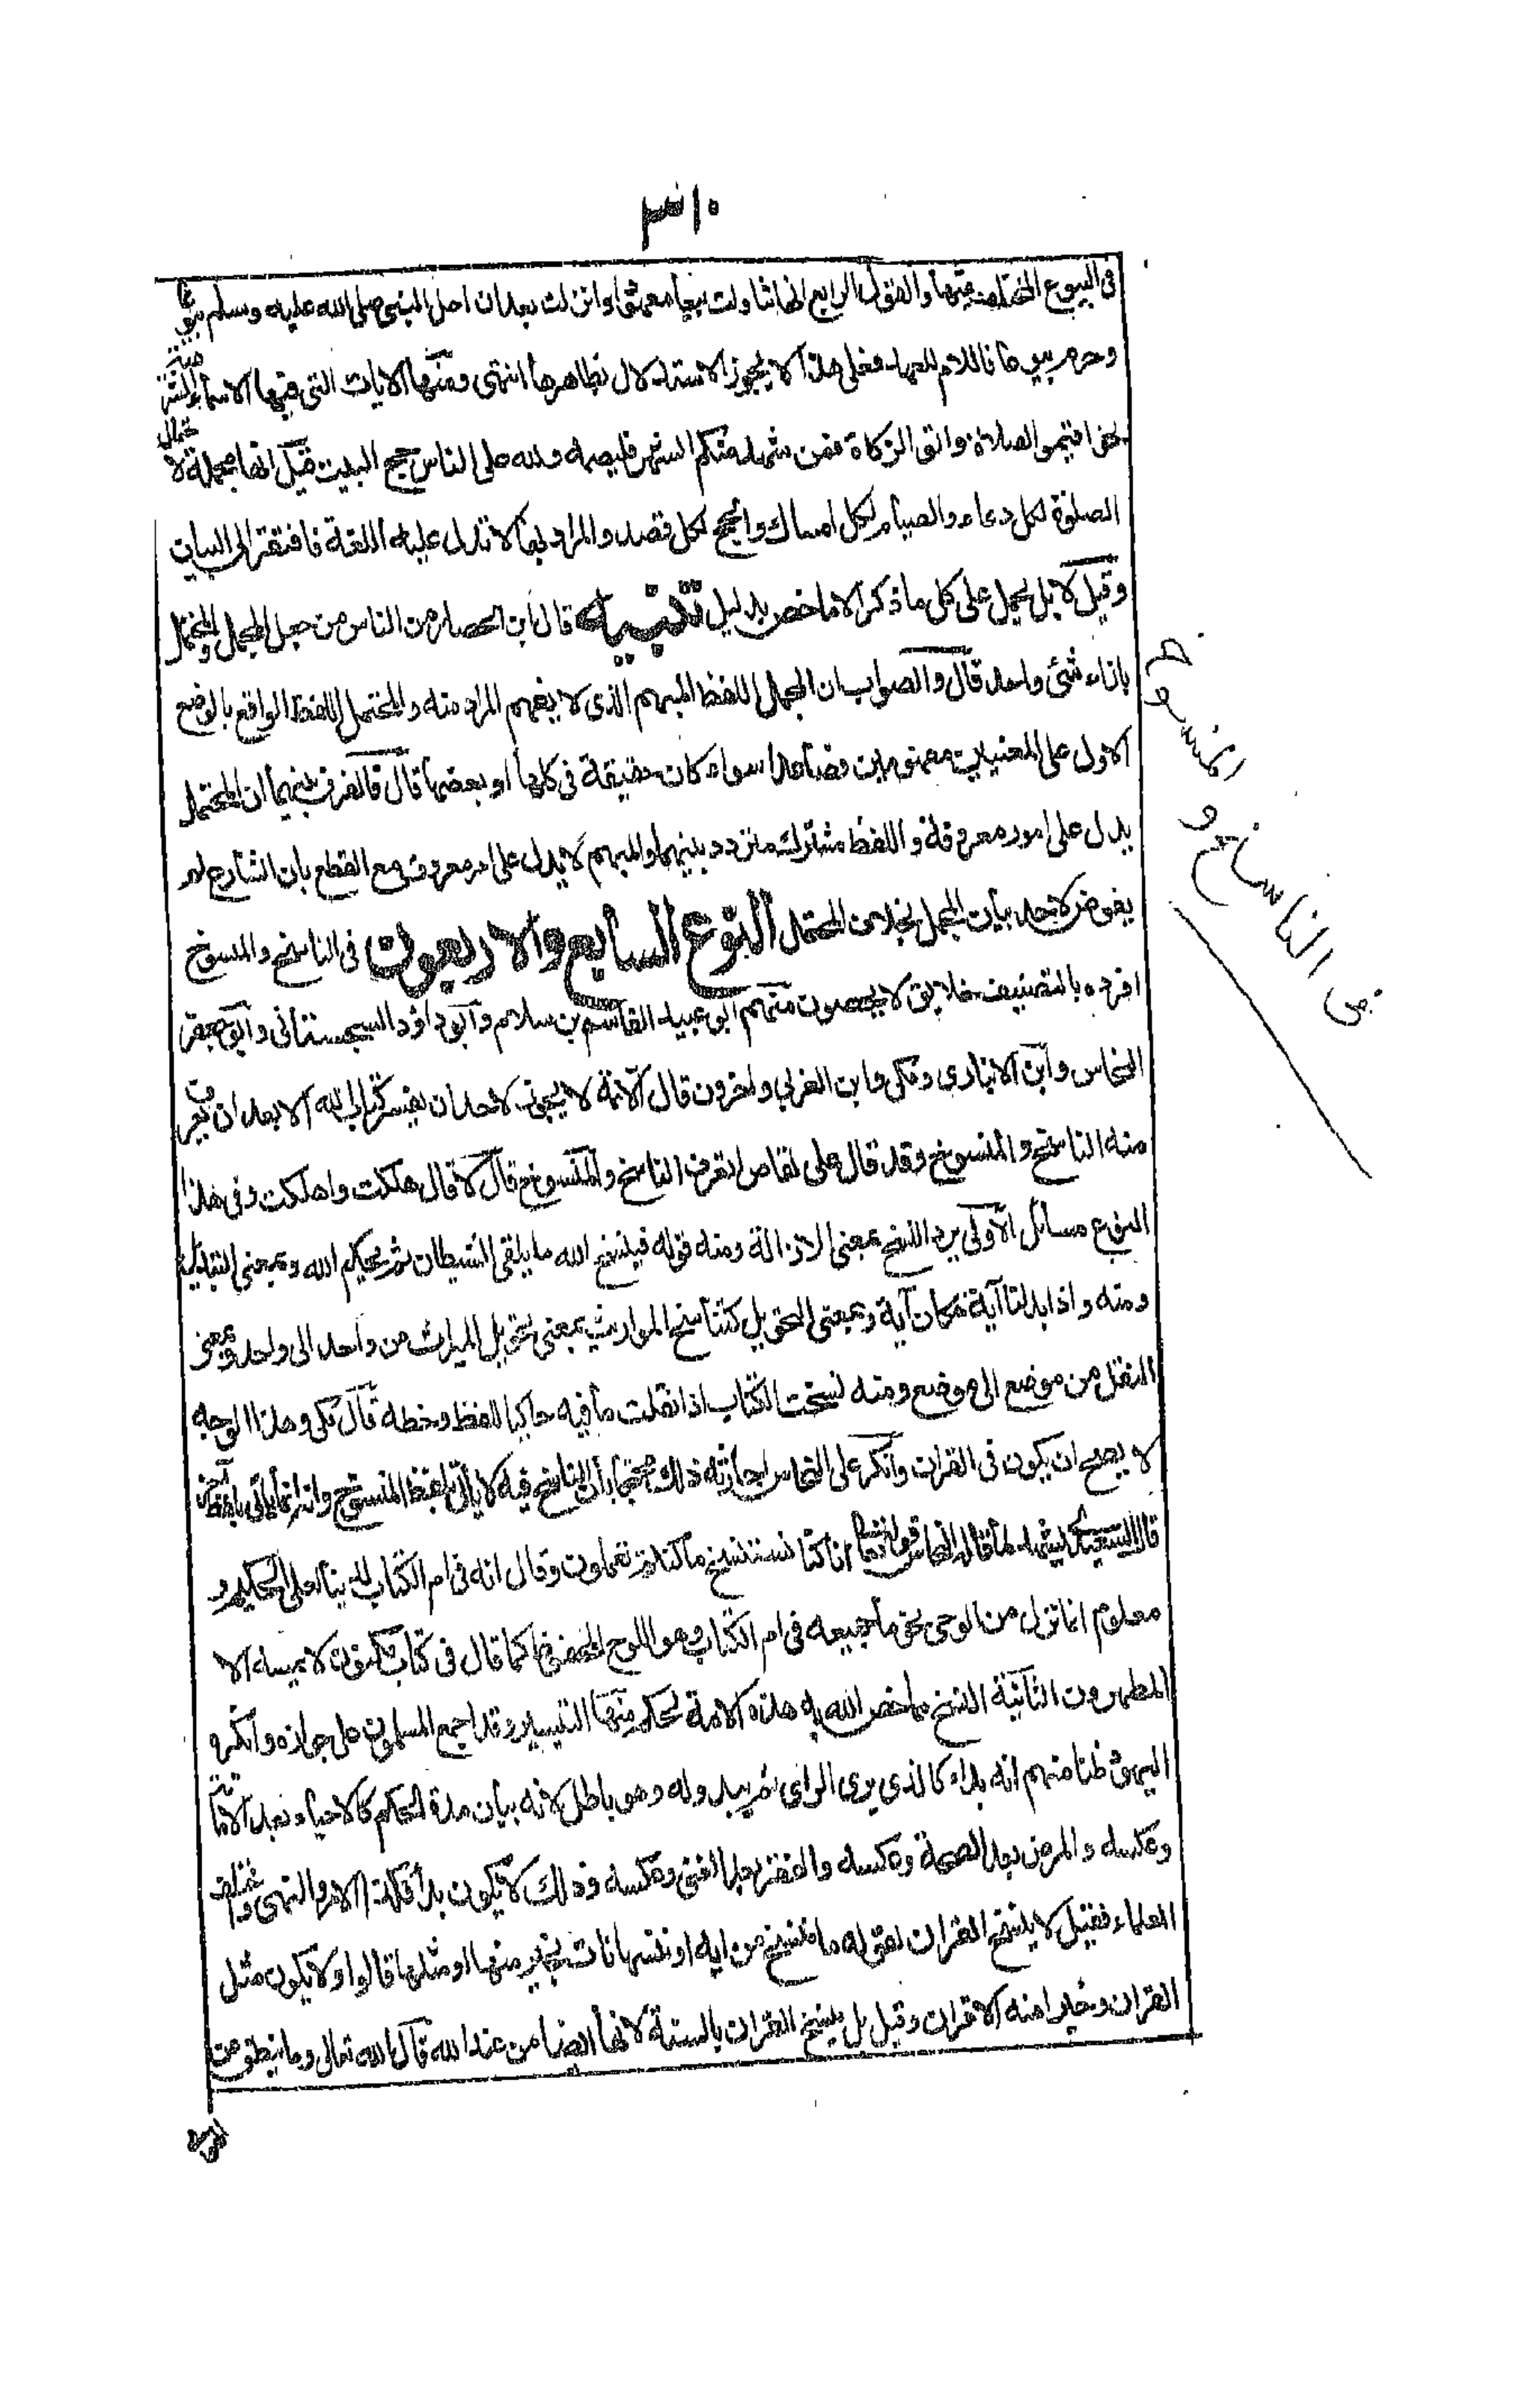 ٣١٠
فى البيوع المختلف فيها والقول الرابع انها تناولت بيعا معهودا وانزلت بعد ان احل النبى صلى الله عليه وسلم بيوعا
وحرم بيوعا فاللام للعهد فعلى هذا لا يجوز الاستدلال بظاهرها انتهى ومنها الايات التى فيها الاسماء الشرعية
نحو اقيموا الصلاة واتوا الزكاة فمن شهد منكم الشهر فليصمه ولله على الناس حج البيت قيل انها مجملة لاحتمال
الصلوة لكل دعاء والصيام لكل امساك والحج لكل قصد والمراد بها لا تدل عليه اللغة فافتقر الى البيان
وقيل لا بل يحمل على كل ما ذكر الا ما خص بدليل تنبيه قال ابن الحصار من الناس من جعل المجمل والمحتمل
بازاء شئ واحد قال والصواب ان المجمل اللفظ المبهم الذى لا يفهم المراد منه والمحتمل اللفظ الواقع بالوضع
الاول على المعنيين مفهومين فصاعدا سواء كان حقيقة فى كلها او بعضها قال فالفرق بينهما ان المحتمل
يدل على امور معروفة واللفظ مشترك متردد بينهما والمبهم لا يدل على امر معروف مع القطع بان الشارع لم
يفوض لاحد بيان المجمل بخلاف المحتمل النوع السابع والاربعون فى الناسخ والمنسوخ
افرده بالتصنيف خلائق لا يحصون منهم ابو عبيد القاسم بن سلام وابو داؤد السجستانى وابو جعفر
النحاس وابن الانبارى ومكى وابن العربى واخرون قال الائمة لا يجوز لاحد ان يفسر كتاب الله الا بعد ان يعرف
منه الناسخ والمنسوخ وقد قال على لقاص اتعرف الناسخ والمنسوخ قال لا قال هلكت واهلكت وفى هذا
النوع مسائل الاولى يرد النسخ بمعنى الازالة ومنه قوله فينسخ الله ما يلقى الشيطان ثم يحكم الله وبمعنى التبديل
ومنه واذا بدلنا آية مكان آية وبمعنى التحويل كتناسخ المواريث بمعنى تحويل الميراث من واحد الى واحد وبمعنى
النقل من موضع الى موضع ومنه نسخت الكتاب اذا نقلت ما فيه حاكيا للفظ وخطه قال مكى وهذا الوجه
لا يصح ان يكون فى القران وانكر على النحاس اجازته ذلك محتجا بان الناسخ فيه لا ياتى بلفظ المنسوخ وانه انما ياتى بلفظ آخر
قال السعيدى يشهد لما قاله النحاس قوله تعالى انا كنا نستنسخ ما كنتم تعملون وقال انه فى ام الكتاب لدينا لعلى حكيم و
معلوم انما نزل من الوحى نجوما جميعه فى ام الكتاب وهو اللوح المحفوظ كما قال فى كتاب مكنون لا يمسه الا
المطهرون الثانية النسخ مما خص الله به هذه الامة لحكم منها التيسير وقد اجمع المسلمون على جوازه وانكره
اليهود ظنا منهم انه بداء كالذى يرى الراى ثم يبدو له وهو باطل لانه بيان مدة الحكم كالاحياء بعد الاماتة
وعكسه والمرض بعد الصحة وعكسه والفقر بعد الغنى وعكسه وذلك لا يكون بداء فكذا الامر والنهى واختلف
العلماء فقيل لا ينسخ القران لقوله ما ننسخ من اية او ننسها نات بخير منها او مثلها قالوا ولا يكون مثل
القران وخيرا منه الا قران وقيل بل ينسخ القران بالسنة لانها ايضا من عند الله قال الله تعالى وما ينطق عن
فى الناسخ و المنسوخ